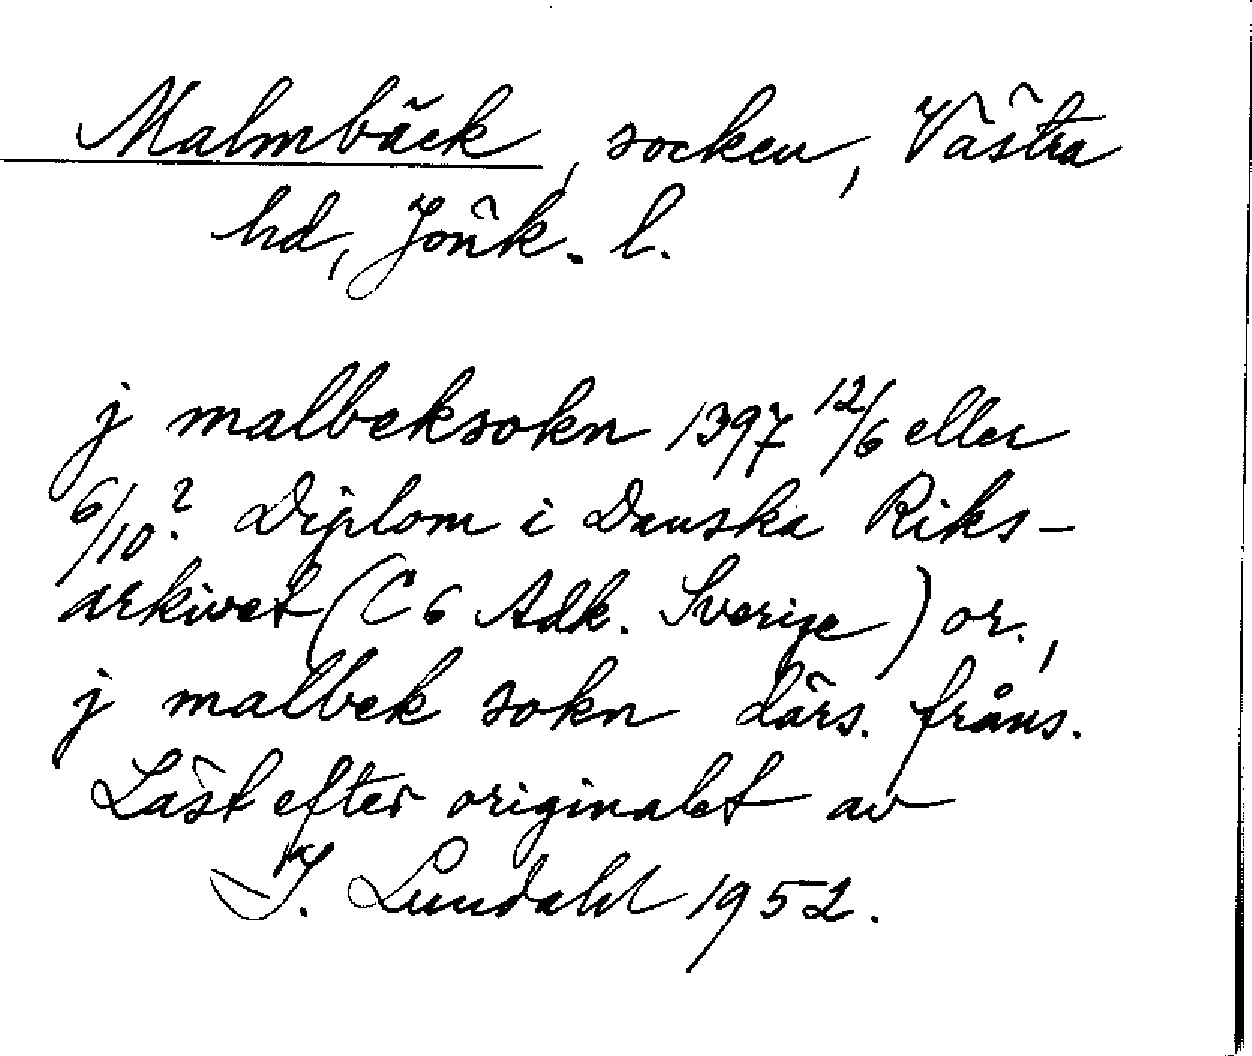 Malmbäck, socken, Västra
hd, Jönk. l.
j malbeksokn 1397 12/6 eller
6/10? Diplom i Danska Riks-
arkivet (C6 Adk. Sverige) or.,
j malbek sokn därs. fråns.
Läst efter originalet av
I. Lundahl 1952.